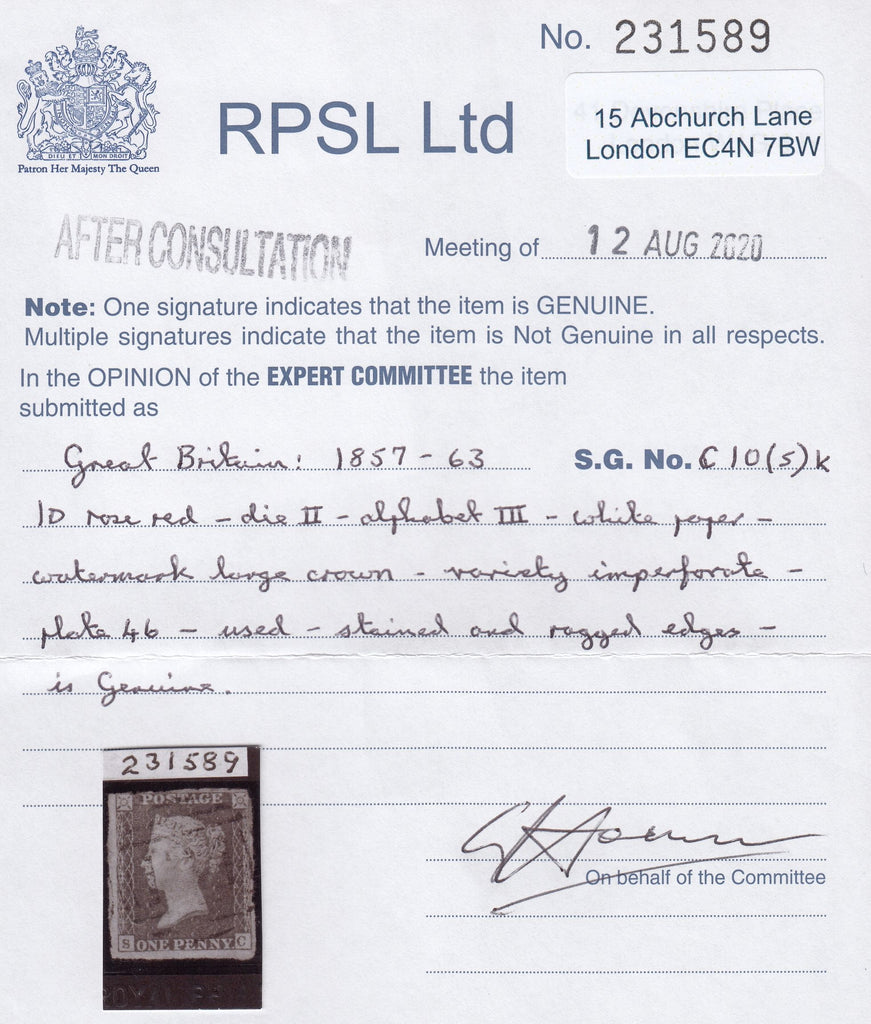 No. 231589
RPSL Ltd
15 Abchurch Lane
London EC4N 7BW
DIEU ET MON DROIT
Patron Her Majesty The Queen
AFTER CONSULTATION
Meeting of 12 AUG 2020
Note: One signature indicates that the item is GENUINE.
Multiple signatures indicate that the item is Not Genuine in all respects.
In the OPINION of the EXPERT COMMITTEE the item
submitted as
Great Britain: 1857 - 63 S.G. No. C10(s)k
1D rose red - die II - alphabet III - white paper -
watermark large crown - variety imperforate -
plate 46 - used - stained and ragged edges -
is Genuine.
231589
POSTAGE
S ONE PENNY C
On behalf of the Committee